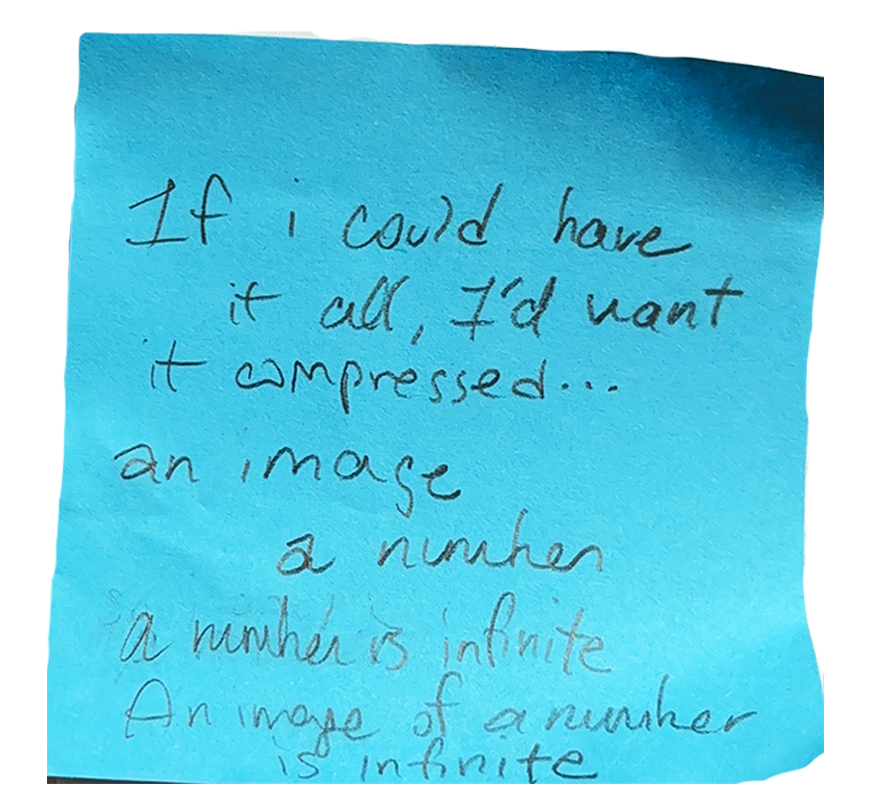 If i could have
it all, I'd want
it compressed...
an image
a number
a number is infinite
An image of a number
is infinite